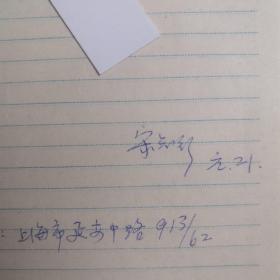 宋知行
元.21.
:上海市延安中路913/62